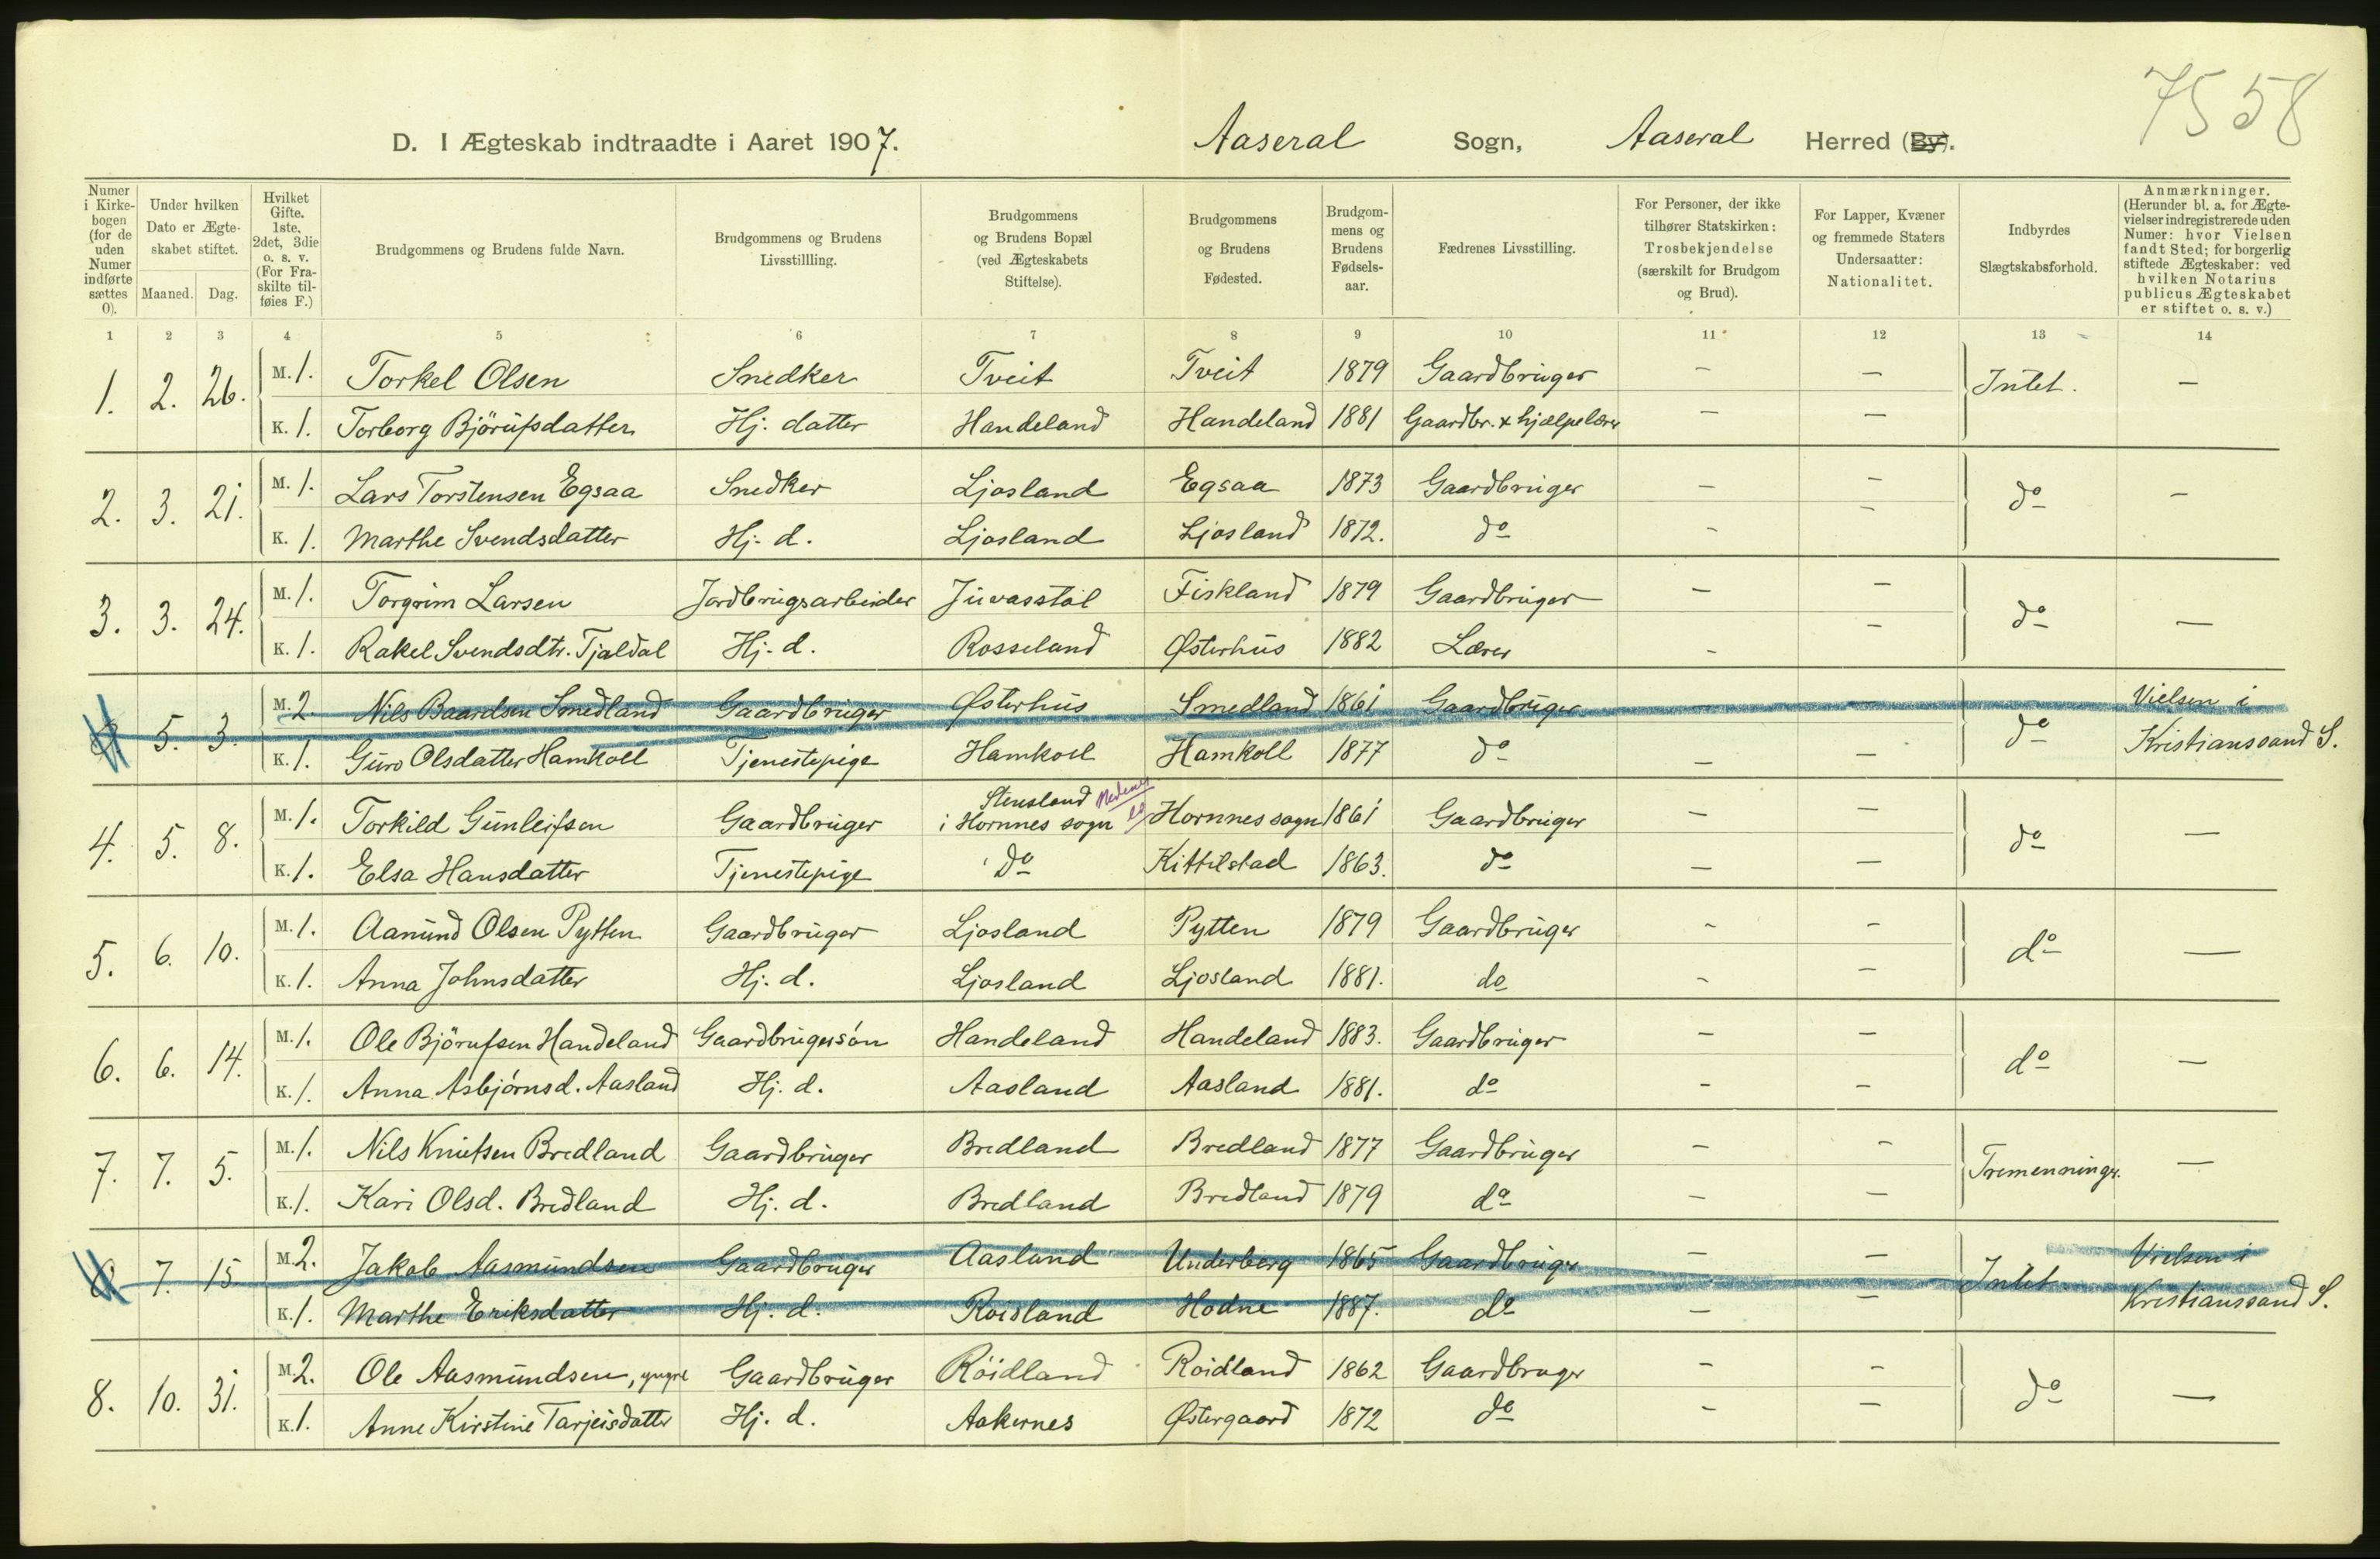 7558
D. I Ægteskab indtraadte i Aaret 1907. Aaseral Sogn, Aaseral Herred (By).
Numer i Kirkebogen (for de uden Numer indførte sættes 0).
Under hvilken Dato er Ægteskabet stiftet. Maaned. Dag.
Hvilket Gifte. 1ste, 2det, 3die o. s. v. (For Fraskilte tilføies F.)
Brudgommens og Brudens fulde Navn.
Brudgommens og Brudens Livsstillling.
Brudgommens og Brudens Bopæl (ved Ægteskabets Stiftelse).
Brudgommens og Brudens Fødested.
Brudgommens og Brudens Fødselsaar.
Fædrenes Livsstilling.
For Personer, der ikke tilhører Statskirken: Trosbekjendelse (særskilt for Brudgom og Brud).
For Lapper, Kvæner og fremmede Staters Undersaatter: Nationalitet.
Indbyrdes Slægtskabsforhold.
Anmærkninger. (Herunder bl. a. for Ægtevielser indregistrerede uden Numer: hvor Vielsen fandt Sted; for borgerlig stiftede Ægteskaber: ved hvilken Notarius publicus Ægteskabet er stiftet o. s. v.)
1 2 3 4 5 6 7 8 9 10 11 12 13 14
1. 2. 26. M. 1. Torkel Olsen Snedker Tveit Tveit 1879 Gaardbruger — — Intet. —
K. 1. Torborg Bjørufsdatter Hj. datter Handeland Handeland 1881 Gaardbr. & hjælpelærer — —
2. 3. 21. M. 1. Lars Torstensen Egsaa Snedker Ljosland Egsaa 1873 Gaardbruger — — do —
K. 1. Marthe Svendsdatter Hj. d. Ljosland Ljosland 1872. do - -
3. 3. 24. M. 1. Torgrim Larsen Jordbrugsarbeider Juvasstøl Fiskland 1879 Gaardbruger — — do —
K. 1. Rakel Svendsdtr. Tjaldal Hj. d. Rosseland Østerhus 1882 Lærer - —
5. 3. M. 2. Nils Baardsen Smedland Gaardbruger Østerhus Smedland 1861 Gaardbruger — — do Vielsen i
K. 1. Guro Olsdatter Hamkoll Tjenestepige Hamkoll Hamkoll 1877 do — — Kristianssand S.
Stensland Nedenes
4. 5. 8. M. 1. Torkild Gunleifsen Gaardbruger i Hornnes sogn Hornnes sogn 1861 Gaardbruger — — do —
K. 1. Elsa Hansdatter Tjenestepige do Kittilstad 1863. do — —
5. 6. 10. M. 1. Aanund Olsen Pytten Gaardbruger Ljosland Pytten 1879 Gaardbruger - - do —
K. 1. Anna Johnsdatter Hj. d. Ljosland Ljosland 1881. do - -
6. 6. 14. M. 1. Ole Bjørufsen Handeland Gaardbrugersøn Handeland Handeland 1883. Gaardbruger — — do —
K. 1. Anna Asbjørnsd. Aasland Hj. d. Aasland Aasland 1881. do - -
7. 7. 5. M. 1. Nils Knutsen Bredland Gaardbruger Bredland Bredland 1877 Gaardbruger — — Tremenninger. —
K. 1. Kari Olsd. Bredland Hj. d. Bredland Bredland 1879 do — —
7. 15 M. 2. Jakob Aasmundsen Gaardbruger Aasland Underberg 1865 Gaardbruger — — Intet Vielsen i
K. 1. Marthe Eriksdatter Hj. d. Roidland Hodne 1887. do — — Kristianssand S.
8. 10. 31. M. 2. Ole Aasmundsen, yngre Gaardbruger Röidland Roidland 1862 Gaardbruger - - do —
K. 1. Anne Kirstine Tarjeisdatter Hj. d. Aakernes Østergaard 1872 do - —